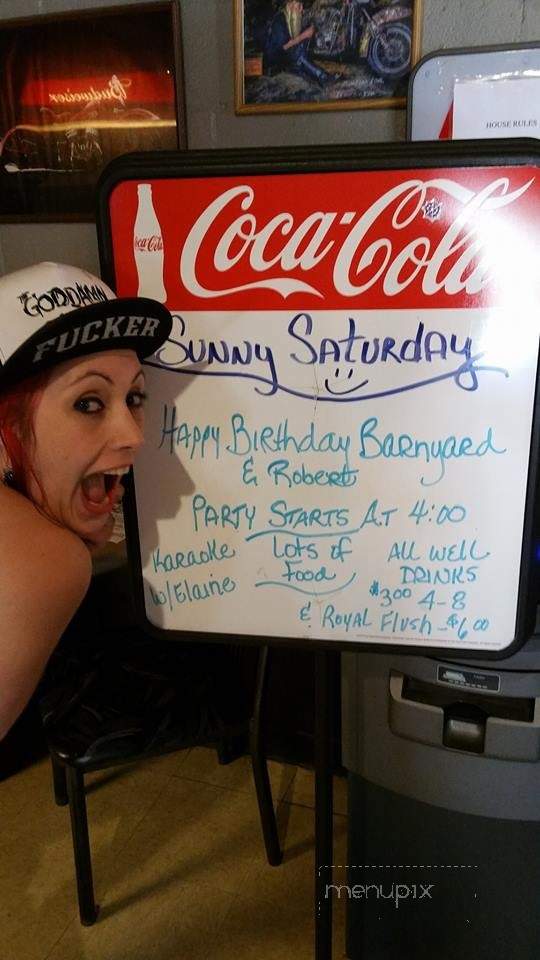 Budweiser
HOUSE RULES
Coca-Cola
Coca-Cola
GODDAMN
FUCKER
SUNNY SATURDAY
HAPPY BIRTHDAY BARNYARD
& ROBERT
PARTY STARTS AT 4:00
KARAOKE
W/ELAINE
LOTS OF
FOOD
ALL WELL
DRINKS
$3.00 4-8
& ROYAL FLUSH - $6.00
menupix